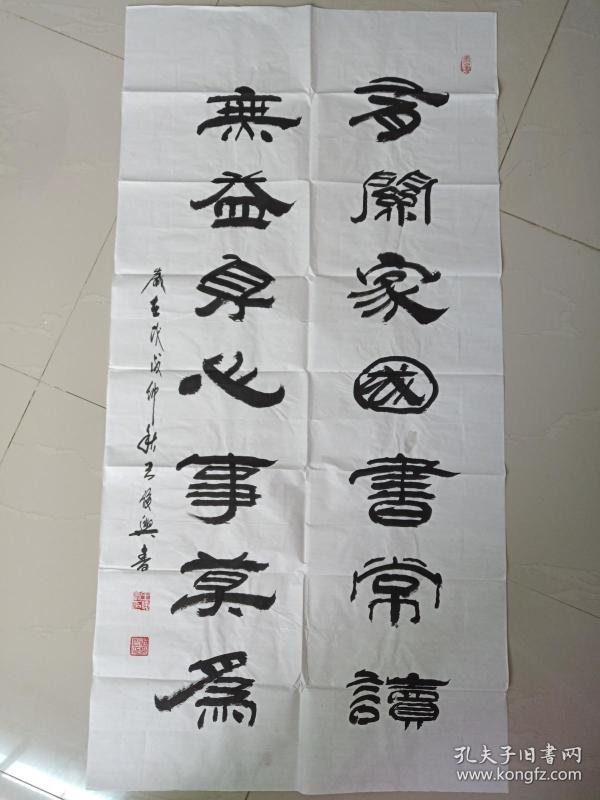 有關家國書常讀
無益身心事莫為
歲在戊戌仲秋王復興書
孔夫子旧书网
www.kongfz.com